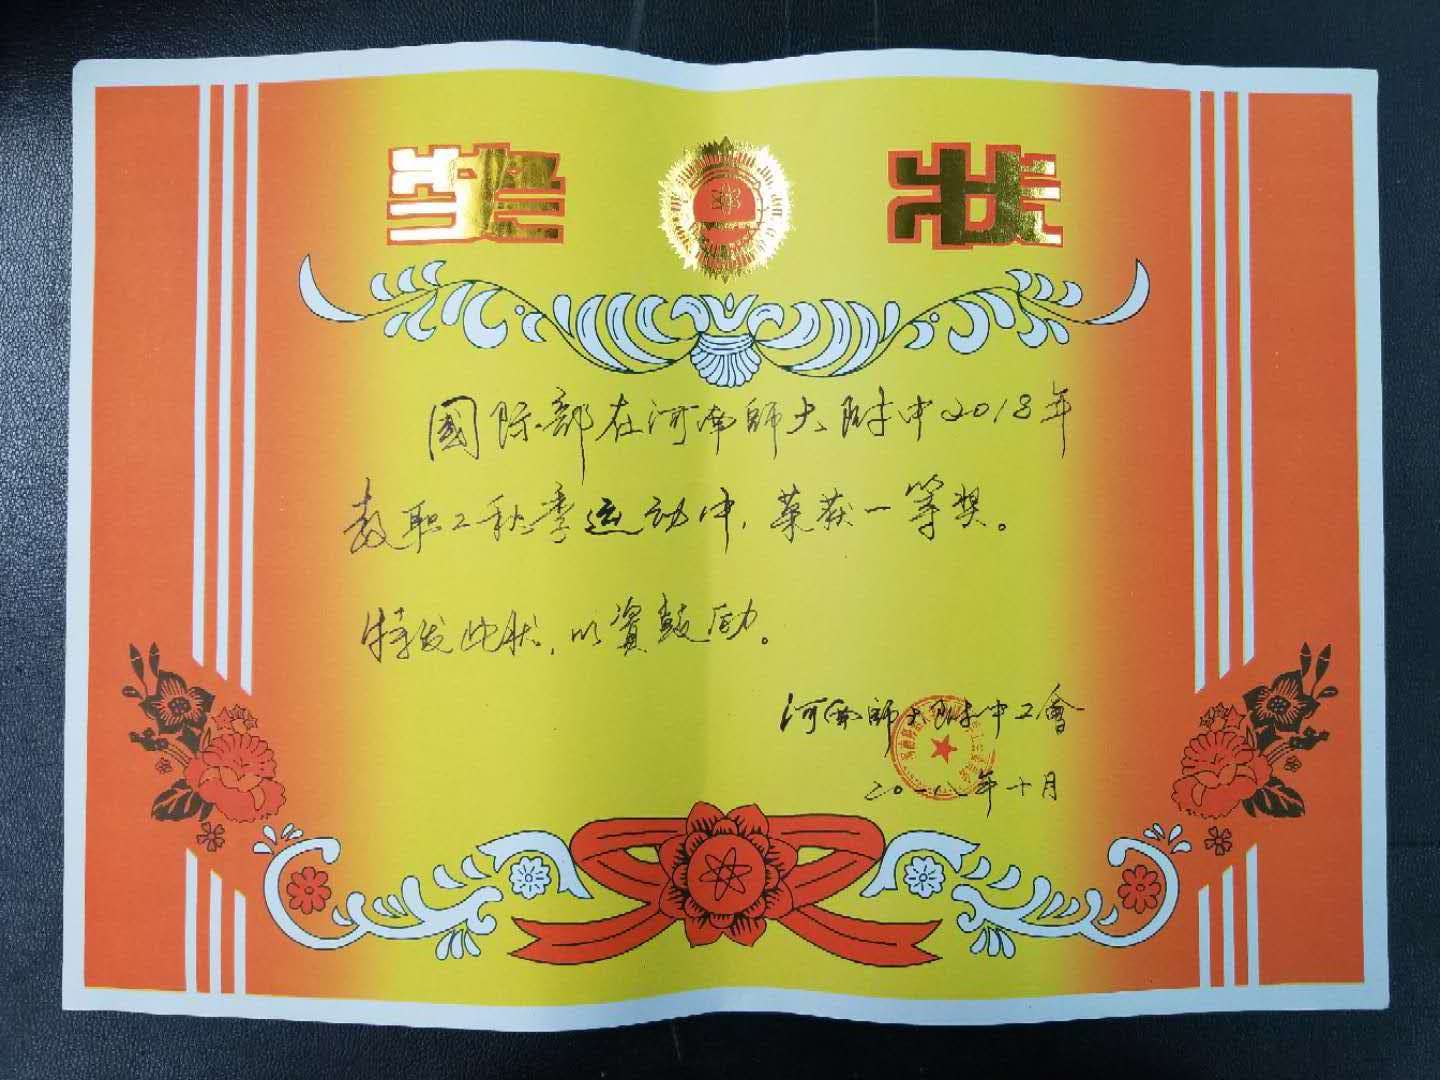 奖 状
國际部在河南師大附中2018年
教职工秋季运动中,荣获一等奖。
特发此状,以资鼓励。
河南師大附中工會
二〇一八年十月